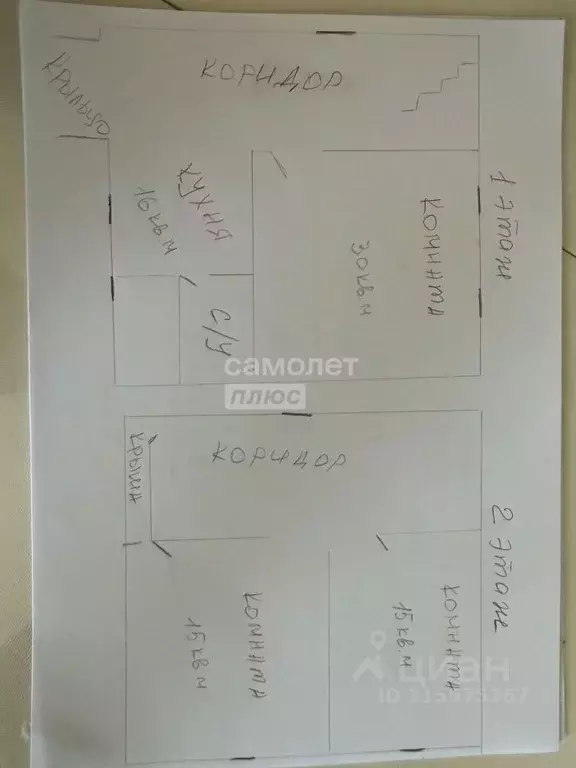 Крыльцо
Коридор
1 этаж
Кухня
16 кв.м
Комната
30 кв.м
С/У
самолет
плюс
Крыша
Коридор
2 этаж
Комната
15 кв.м
Комната
15 кв.м
циан